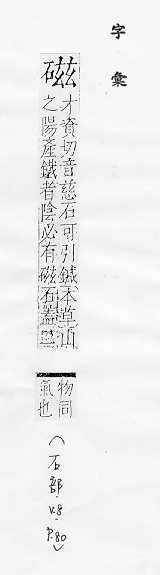 字彙
磁
才資切音慈石可引鍼本草山
之陽產鐵者陰必有磁石蓋二
物同
氣也
(石部·V.8·P.80)